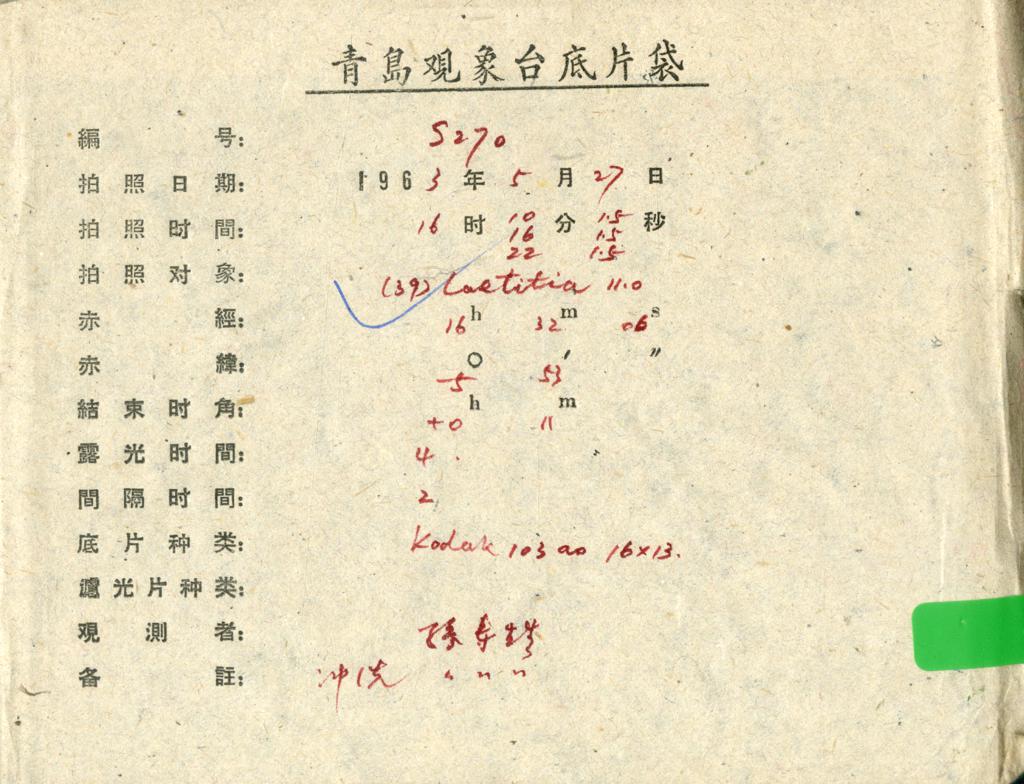 青島观象台底片袋
編号: S270
拍照日期: 1963年5月27日
拍照时間: 16时10分15秒
16 15
22 15
拍照对象: (39) Laetitia 11.0
赤經: 16h 32m 06s
赤緯: -5° 53′ ″
結束时角: +0h 11m
露光时間: 4
間隔时間: 2
底片种类: Kodak 103ao 16×13.
濾光片种类:
观測者: 孫寿
备註: 冲洗 〃 〃 〃